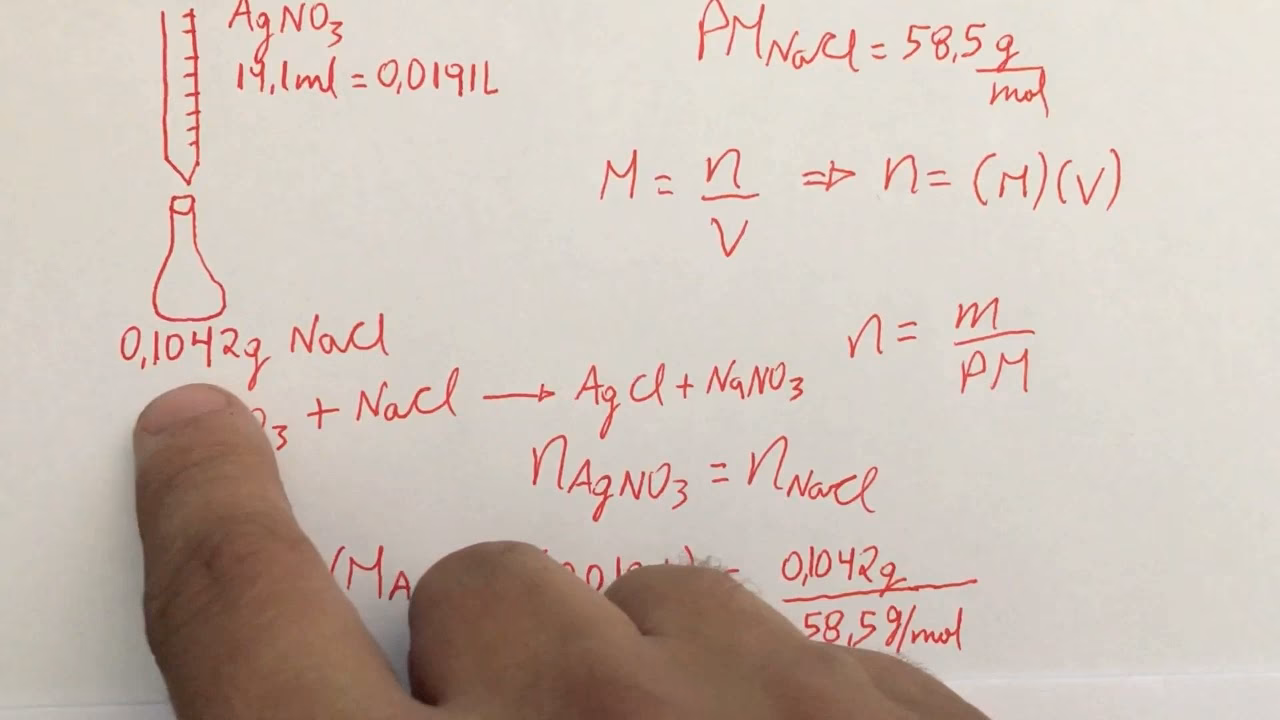 AgNO3
19,1ml = 0,0191L
PM NaCl = 58,5 g/mol
M = n/V ⇒ n = (M)(V)
0,1042g NaCl
n = m/PM
+ NaCl → AgCl + NaNO3
n AgNO3 = n NaCl
0,1042g
58,5g/mol